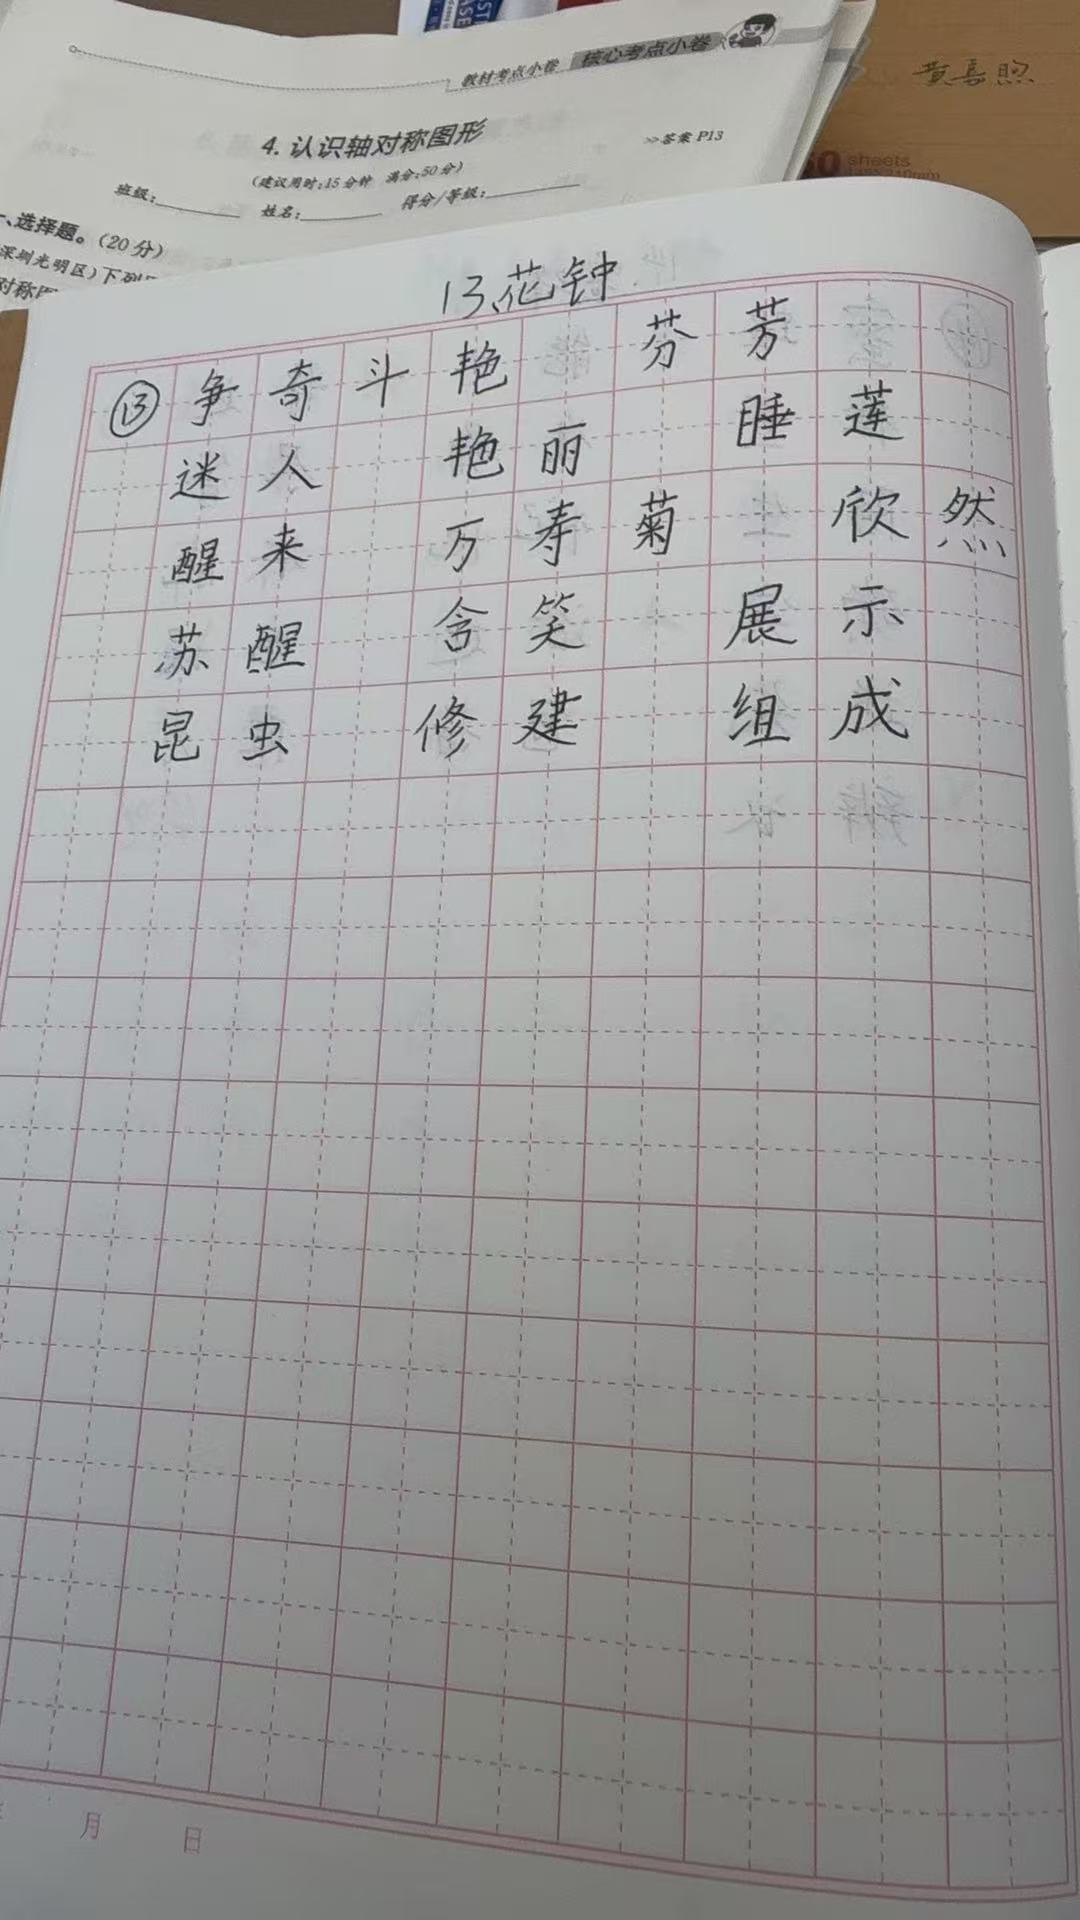 教材考点小卷 核心考点小卷
黄嘉煦
4.认识轴对称图形
>>答案 P13
(建议用时:15分钟 满分:50分)
sheets
班级: 姓名: 得分/等级:
一、选择题。(20分)
深圳光明区)下列
对称图
13.花钟
⑬ 争奇斗艳 芬芳
迷人 艳丽 睡莲
醒来 万寿菊 欣然
苏醒 含笑 展示
昆虫 修建 组成
月 日